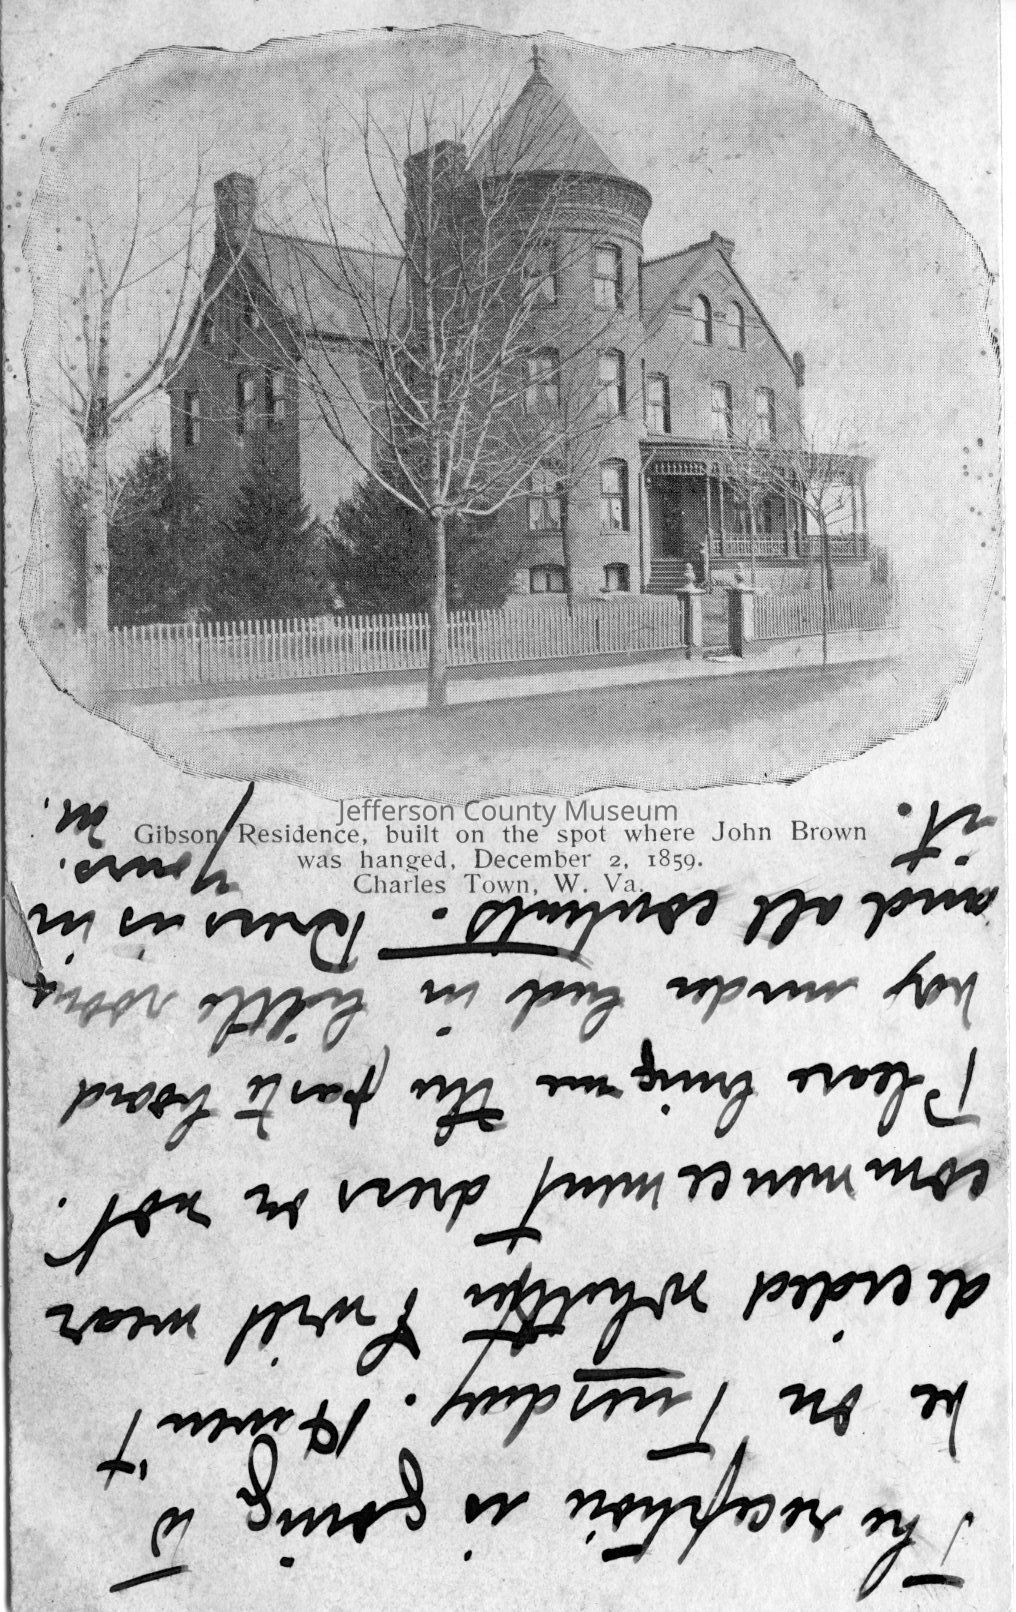 Jefferson County Museum
Gibson Residence, built on the spot where John Brown
was hanged, December 2, 1859.
Charles Town, W. Va.
The reception is going to
be on Tuesday. Haven't
decided whether I will wear
commencement dress or not.
Please bring me the paste board
box under bed in little room
and all contents. Dress is in
it. Yours.
M.